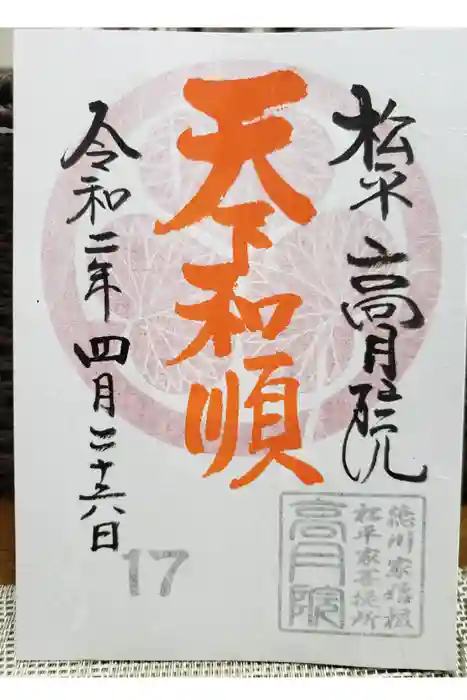 松平 高月院
天下和順
令和二年 四月二十六日
17
徳川家
松平家菩提所
高月院